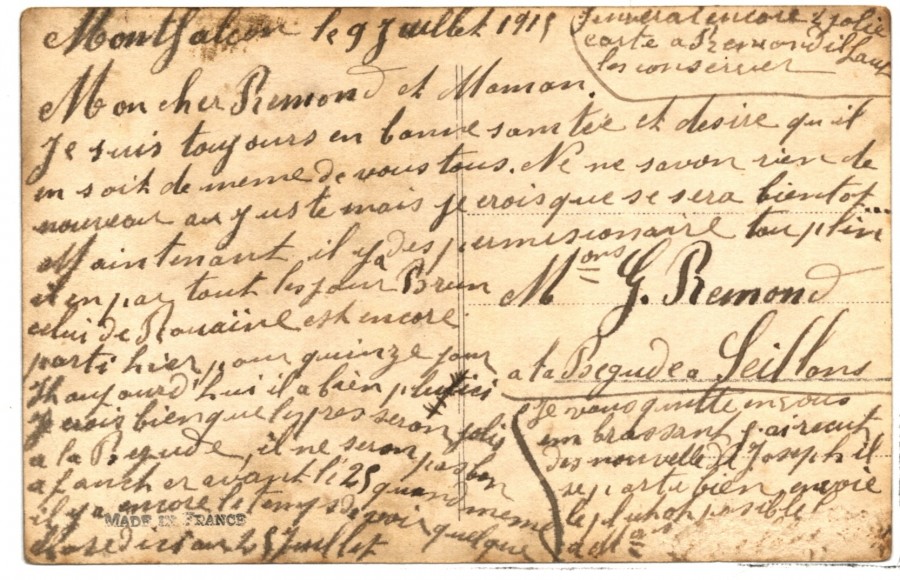 Montfalcon le 9 Juillet 1915
Mon cher Remond et Maman.
Je suis toujours en bonne santée et desire qu'il
en soit de meme de vous tous. Ne ne savon rien de
nouveau au juste mais je crois que se sera bientot
Maintenant il y a des permisionaire tou plein
il en par tout les jour Brun
celui de Rouaïne est encore
parti hier pour quinze jour
aujourd'hui il a bien plu ici
Je crois bien que les pres seron jolis
a la Begude, il ne seron pas bon
a fauch er avant le 25 quand
il y a encore le temps de voir quelque
chose d ici au 25 Juillet
MADE IN FRANCE
Je vous quitte en vous
embrassant J'ai recut
des nouvelle de Joseph il
se porte bien envoie
le plu possible
a
enverai encore 1 jolie
carte a Remond il faut
les conserver
Mons G. Remond
a la Begude a Seillons